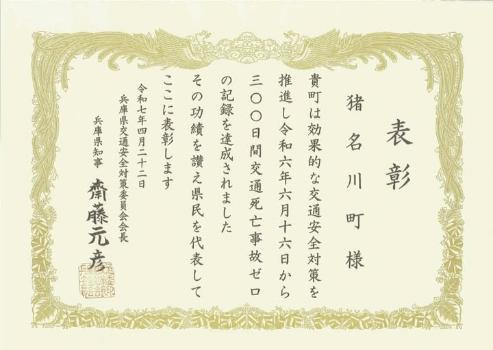 表彰
猪名川町様
貴町は効果的な交通安全対策を
推進し令和六年六月十六日から
三〇〇日間交通死亡事故ゼロ
の記録を達成されました
その功績を讃え県民を代表して
ここに表彰します
令和七年四月二十二日
兵庫県交通安全対策委員会会長
兵庫県知事 齋藤元彦